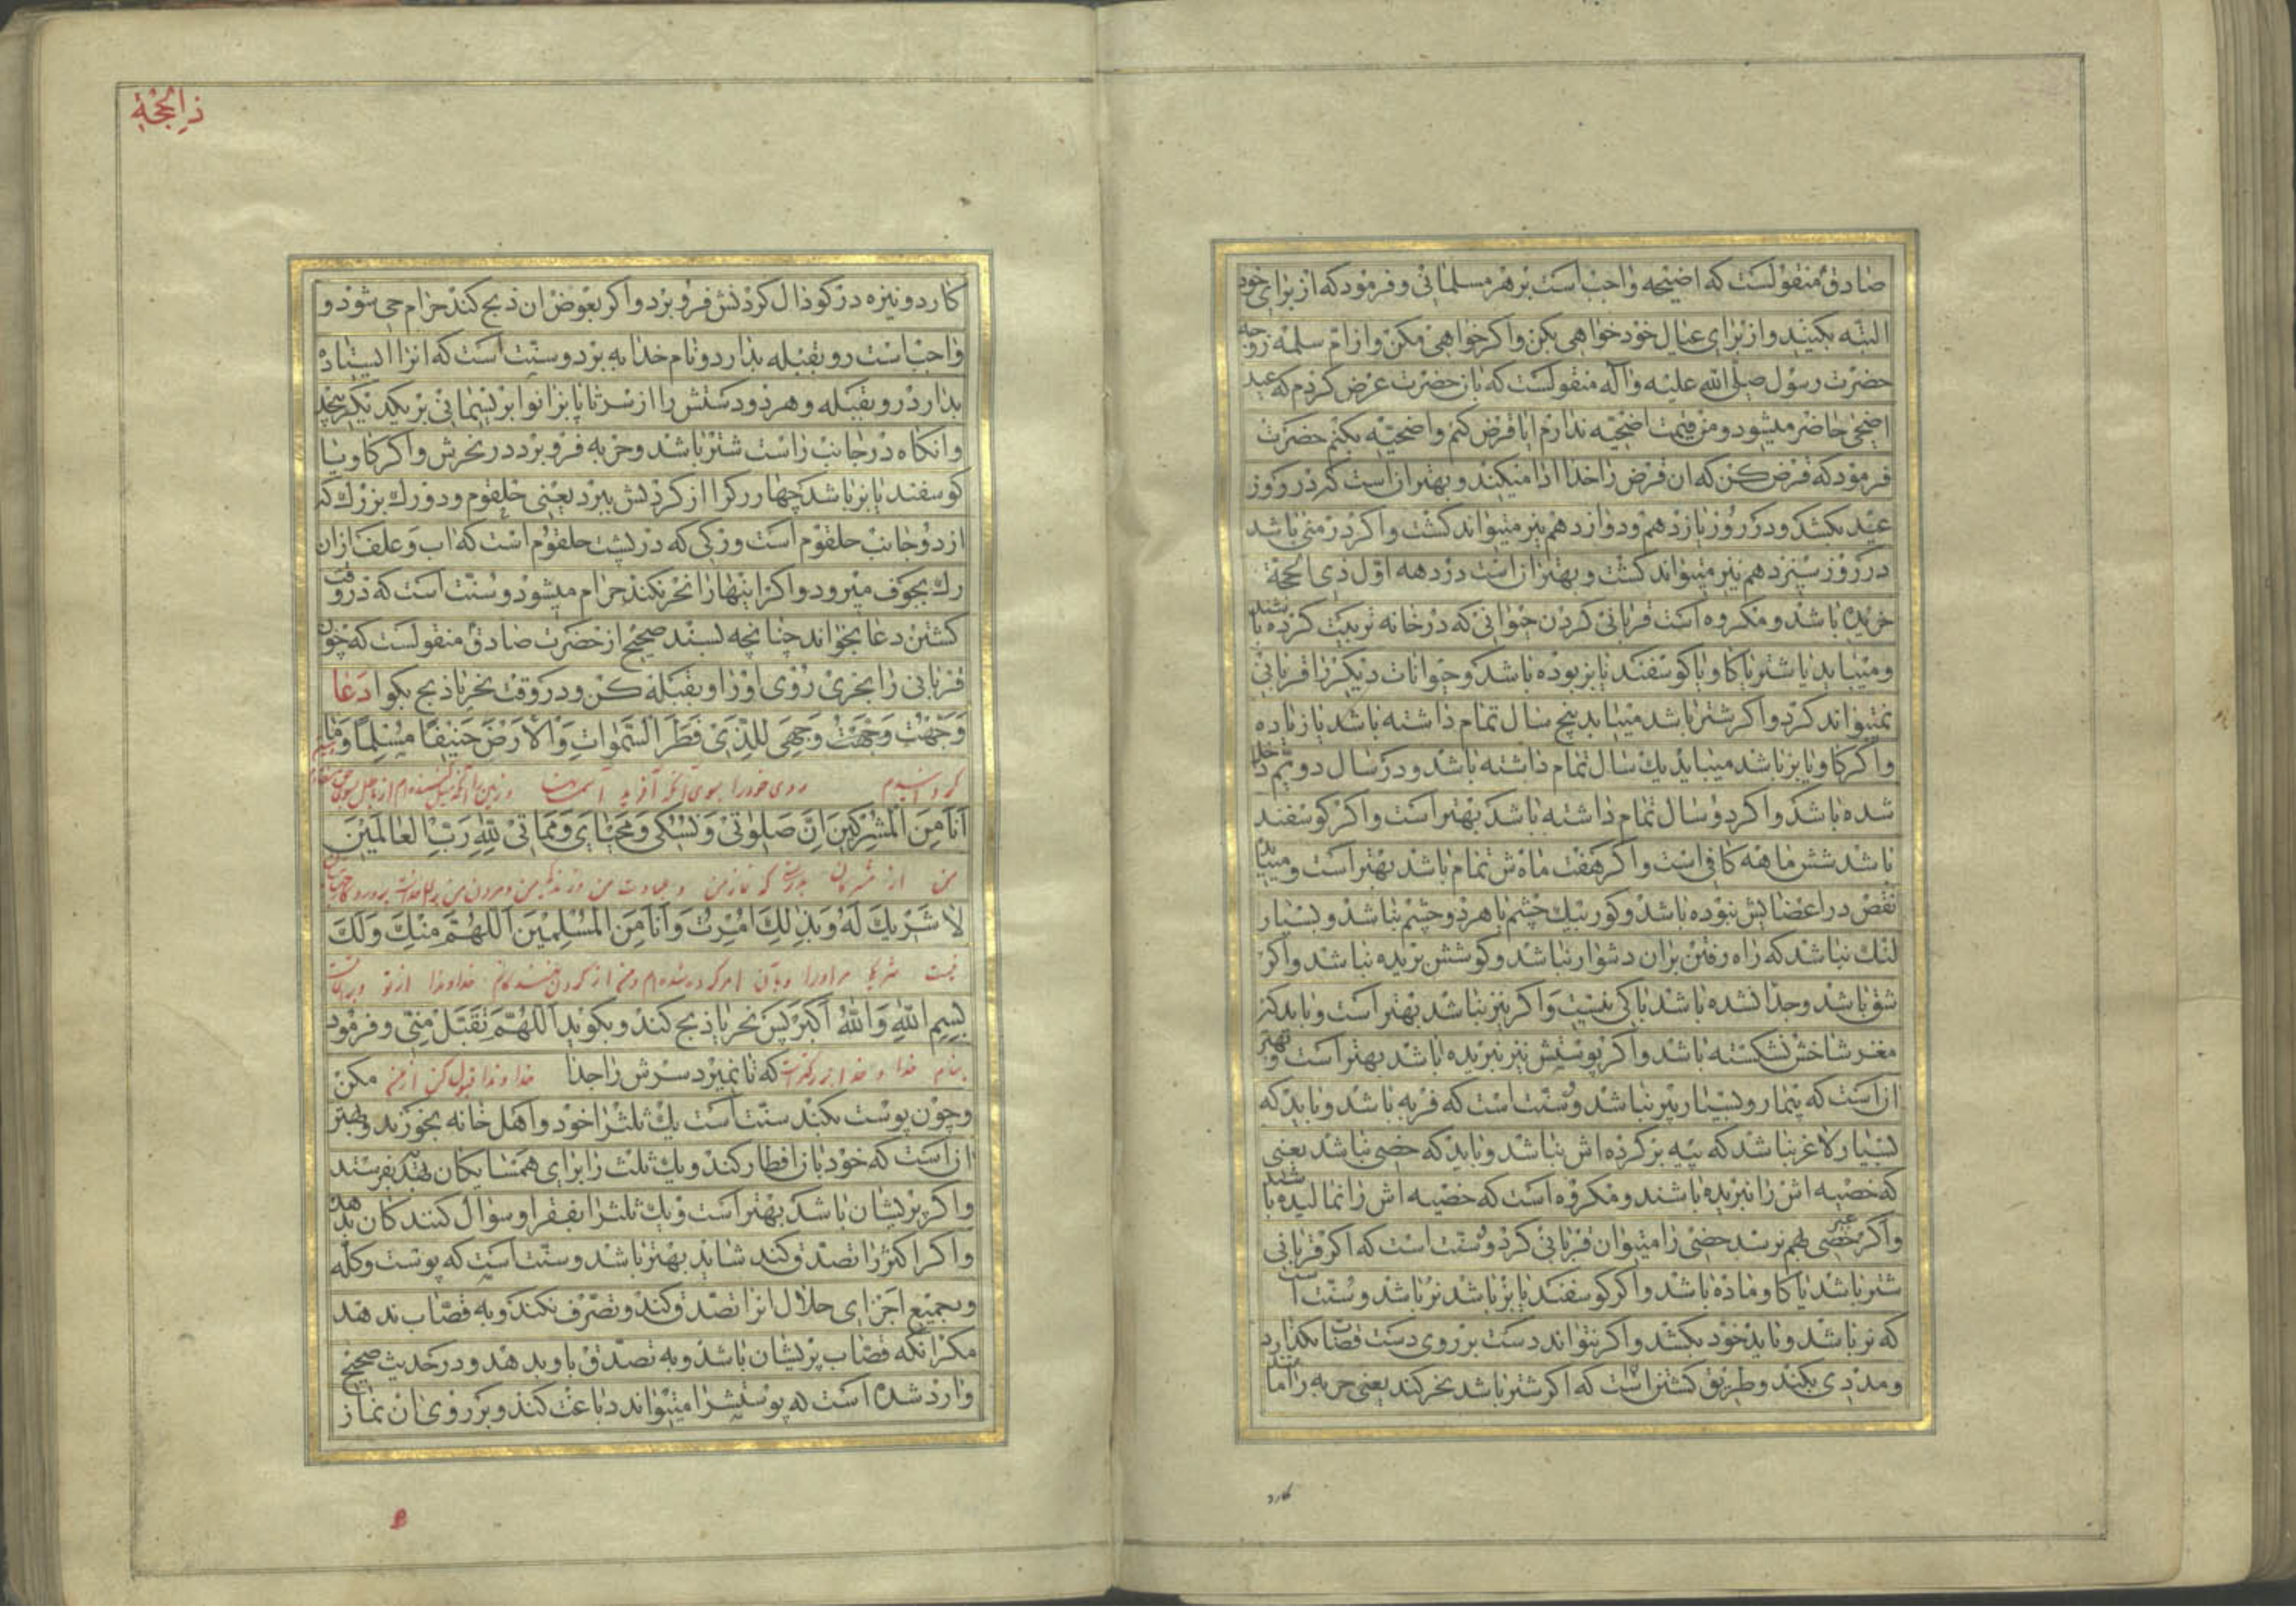 صادق منقولست که اضحیه واجب است بر هر مسلمانی و فرمود که از برای خود
البته بکنید و از برای عیال خود خواهی بکن و اگر خواهی مکن و از ام سلمه زوجه
حضرت رسول صلی الله علیه وآله منقولست که بان حضرت عرض کردم که عید
اضحی حاضر میشود و من قیمت اضحیه ندارم ایا قرض کنم و اضحیه بکنم حضرت
فرمود که قرض کن که ان قرض را خدا ادا میکند و بهتر انست که در روز
عید بکشد و در روز یازدهم و دوازدهم نیز میتواند کشت و اگر در منی باشد
در روز سیزدهم نیز میتواند کشت و بهتر انست در دهه اول ذی الحجة
خریده باشد و مکروه است قربانی کردن حیوانی که در خانه تربیت کرده باشد
و میباید یا شتر یا کاو یا کوسفند یا بز بوده باشد و حیوانات دیکر را قربانی
نمیتواند کرد و اگر شتر باشد میباید پنج سال تمام داشته باشد یا زیاده
و اگر کاو یا بز باشد میباید یک سال تمام داشته باشد و در سال دویم داخل
شده باشد و اگر دو سال تمام داشته باشد بهتر است و اگر کوسفند
باشد شش ماهه کافی است و اگر هفت ماهش تمام باشد بهتر است و میباید
نقص در اعضایش نبوده باشد و کور بیک چشم یا هر دو چشم نباشد و بسیار
لنک نباشد که راه رفتن بران دشوار نباشد و کوشش بریده نباشد و اگر
شق باشد و جدا نشده باشد باکی نیست و اگر نیز نباشد بهتر است و باید که
مغز شاخش نشکسته باشد و اگر پوستش نیز نبریده باشد بهتر است و بهتر
ان است که بیمار و بسیار پیر نباشد و سنت است که فربه باشد و باید که
بسیار لاغر نباشد که پیه بر کرده اش نباشد و باید که خصی نباشد یعنی
که خصیه اش را نبریده باشند و مکروه است که خصیه اش را نمالیده باشند
و اگر غیر خصی بهم نرسد خصی را میتوان قربانی کرد و سنت است که اگر قربانی
شتر باشد یا کاو ماده باشد و اگر کوسفند یا بز باشد نر باشد و سنت است
که نر باشد و باید خود بکشد و اگر نتواند دست بر روی دست قصاب بگذارد
و مددی بکند و طریق کشتن انست که اگر شتر باشد نحر کند یعنی حربه را مانند
کارد
ذی الحجة
کارد و نیزه در کودال کردنش فرو برد و اگر بعوض ان ذبح کند حرام می شود و
واجب است رو بقبله بدارد و نام خدا به برد و سنت است که انرا ایستاده
بدارد رو بقبله و هر دو دستش را از سر تا پا بزانو با ریسمانی بر یکدیکر پیچد
و انکاه در جانب راست شتر باشد و حربه فرو برد در نحرش و اگر کاو یا
کوسفند یا بز باشد چهار رک را از کردنش ببرد یعنی حلقوم و دو رک بزرک که
از دو جانب حلقوم است و رکی که در پشت حلقوم است که اب و علف از ان
رک بجوف میرود و اگر اینها را نحر نکند حرام میشود و سنت است که در وقت
کشتن دعا بخواند چنانچه بسند صحیح از حضرت صادق منقولست که چون
قربانی را بخری روی او را و بقبله کن و در وقت نحر یا ذبح بکو دعا
وَجَّهْتُ وَجْهِيَ لِلَّذِي فَطَرَ السَّمٰوَاتِ وَالْأَرْضَ حَنِيفًا مُسْلِمًا وَمَا
روی خود را بسوی آنکه آفرید آسمانها و زمین را
أَنَا مِنَ الْمُشْرِكِينَ إِنَّ صَلوٰتِي وَنُسُكِي وَمَحْيَايَ وَمَمَاتِي لِلّٰهِ رَبِّ الْعَالَمِينَ
من از مشرکان بدرستی که نماز من و عبادت من و زندکی من و مردن من
لَا شَرِيكَ لَهُ وَبِذٰلِكَ أُمِرْتُ وَأَنَا مِنَ الْمُسْلِمِينَ اللّٰهُمَّ مِنْكَ وَلَكَ
نیست شریک مر او را و بآن امر کرده شده ام و منم از خداوندا از تو
بِسْمِ اللّٰهِ وَاللّٰهُ أَكْبَرُ پس نحر یا ذبح کند و بکوید اللّٰهُمَّ تَقَبَّلْ مِنِّي و فرمود
بنام خدا و خدا بزرکتر است که تا نمیرد سرش را جدا خداوندا قبول کن از من مکن
و چون پوست بکند سنت است یک ثلث را خود و اهل خانه بخورند و بهتر
ان است که خود بان افطار کند و یک ثلث را برای همسایکان هدیه بفرستد
و اگر پریشان باشند بهتر است و یک ثلث را بفقرا و سؤال کنندکان بدهد
و اگر اکثر را تصدق کند شاید بهتر باشد و سنت است که پوست و کله
و بجمیع اجزای حلال انرا تصدق کند و تصرف نکند و به قصاب ندهد
مکر انکه قصاب پریشان باشد و به تصدق باو بدهد و در حدیث صحیح
وارد شده است که پوستش را میتواند دباغت کند و بر روی ان نماز